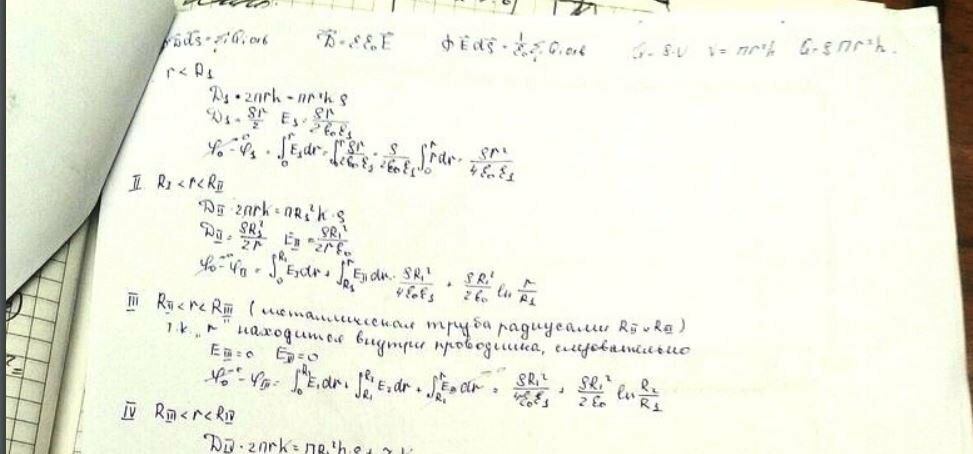 ∮D⃗dS⃗ = Σqᵢ охв   D⃗ = εε₀E⃗   ∮E⃗dS⃗ = 1/ε₀ Σqᵢ охв   q = ρ·V   V = πr²h   q = ρπr²h.
r < R₁
D₁ · 2πrh = πr²h ρ
D₁ = ρr/2   E₁ = ρr/2ε₀ε₁
φ₀ - φ₁ = ∫₀ʳ E₁dr = ∫₀ʳ ρr/2ε₀ε₁ = ρ/2ε₀ε₁ ∫₀ʳ rdr = ρr²/4ε₀ε₁
II R₁ < r < R_II
D_II · 2πrh = πR₁²h · ρ
D_II = ρR₁²/2r   E_II = ρR₁²/2rε₀
φ₀ - φ_II = ∫₀^R₁ E₁dr + ∫_R₁^r E_II dr = ρR₁²/4ε₀ε₁ + ρR₁²/2ε₀ ln r/R₁
III R_II < r < R_III (металлическая труба радиусами R_II и R_III)
т.к. "r" находится внутри проводника, следовательно
E_III = 0
φ₀ - φ_III = ∫₀^R₁ E₁dr + ∫_R₁^R₂ E₂dr + = ρR₁²/4ε₀ε₁ + ρR₁²/2ε₀ ln R₂/R₁
IV R_III < r < R_IV